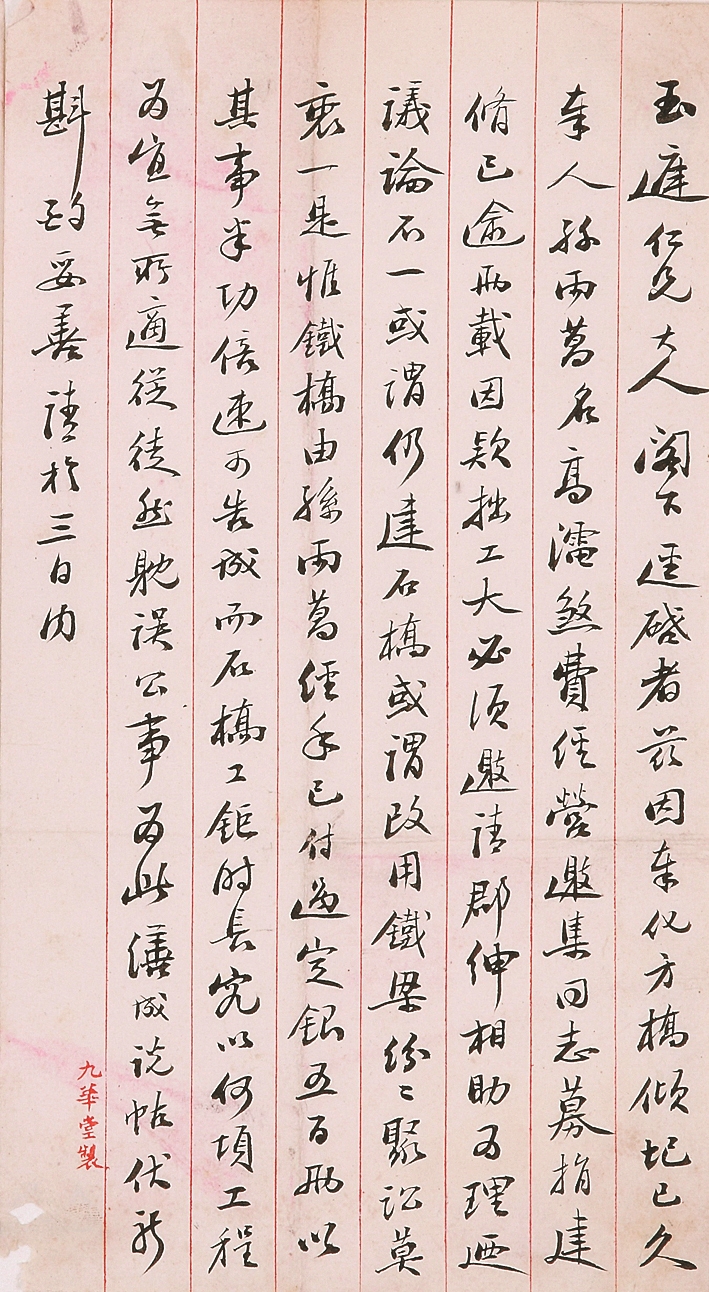 玉庭仁兄大人閣下逕啓者茲因奉化方橋傾圮已久
奉人孫雨菖名高濡煞費經營邀集同志募捐建
脩已逾兩載因欵拙工大必須邀請郡紳相助为理迺
議論不一或謂仍建石橋或謂改用鐵梁紛〻聚訟莫
衷一是惟鐵橋由孫雨菖經手已付過定銀五百兩以
其事半功倍速可告成而石橋工鉅时長究以何項工程
为宜無所適從徒然躭誤公事为此繕成説帖伏祈
斟酌妥善請於三日内
九華堂製